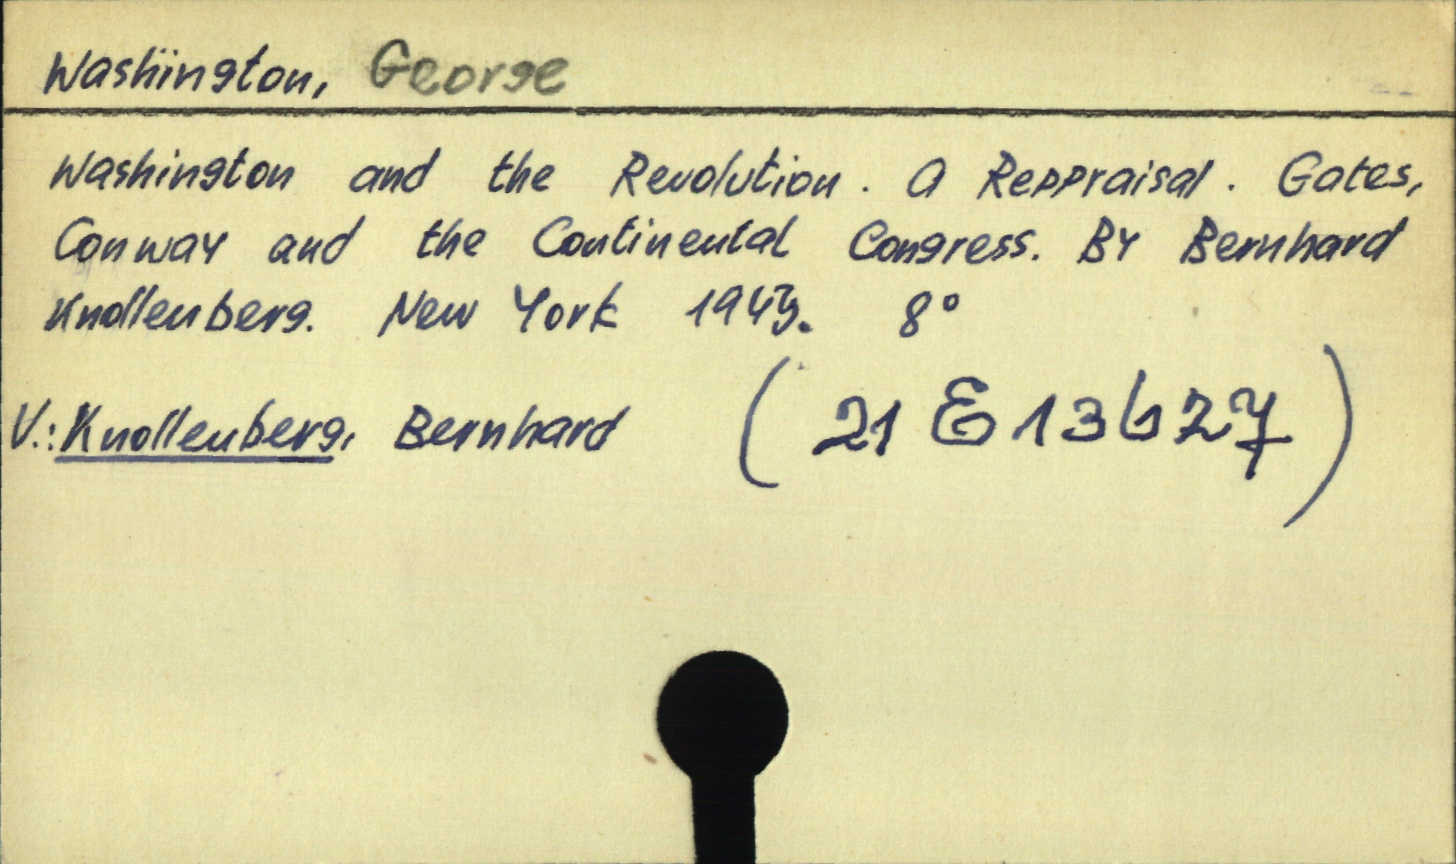 Washington, George
Washington and the Revolution. A Reppraisal. Gates,
Conway and the Continental Congress. By Bernhard
Knollenberg. New York 1943. 8°
V.: Knollenberg, Bernhard (21 E 13627)